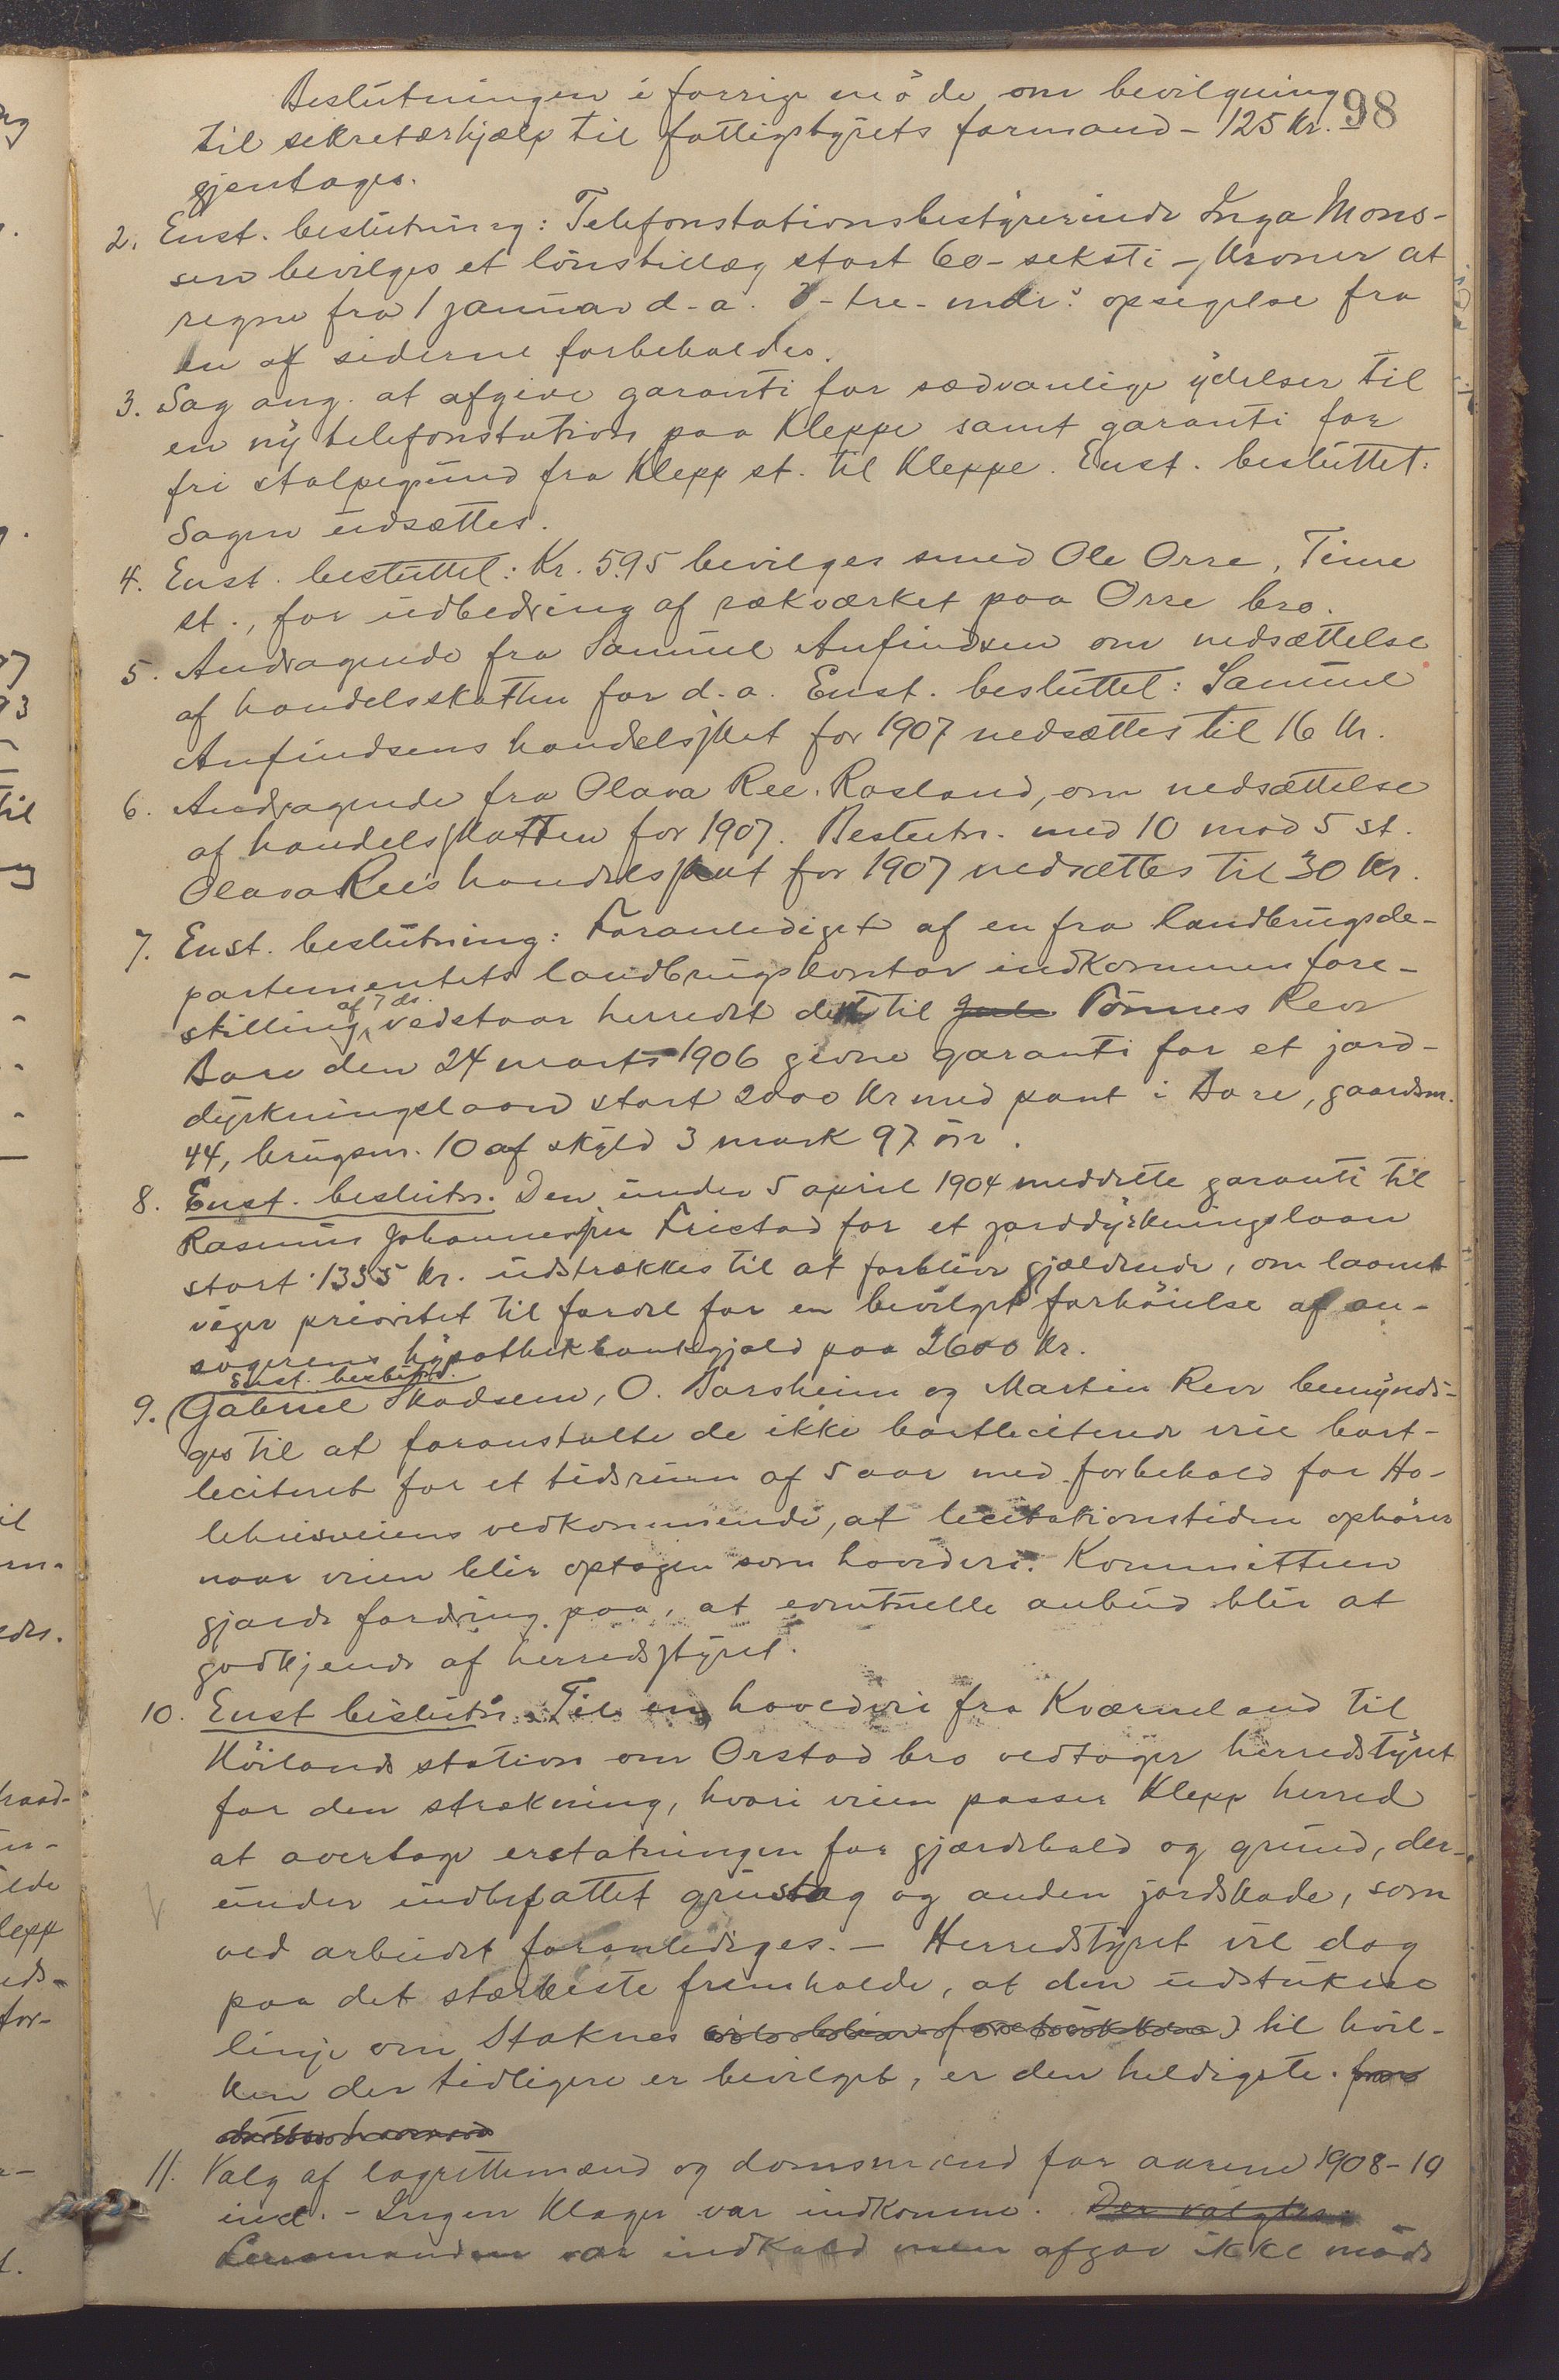 98
Beslutningen i forrige möde om bevilgning
til sekretærhjælp til fattigstyrets formand - 125 Kr.
gjentages.
2. Enst. beslutning: Telefonstationsbestyrerinde Inga Mons-
sen bevilges et lönstillæg stort 60 - seksti - Kroner at
regne fra 1 januar d. a. 3 - tre - mdrs opsigelse fra
en af siderne forbeholdes.
3. Sag ang. at afgive garanti for sædvanlige ydelser til
en ny telefonstation paa Kleppe samt garanti for
fri stolpegrund fra Klepp st. til Kleppe. Enst. besluttet:
Sagen udsættes.
4. Enst. besluttet: Kr. 5.95 bevilges smed Ole Orre, Time
st., for udbedring af rækværket paa Orre bro.
5. Andragende fra Samuel Anfindsen om nedsættelse
af handelsskatten for d. a. Enst. besluttet: Samuel
Anfindsens handelsskat for 1907 nedsættes til 16 Kr.
6. Andragende fra Olava Ree. Rosland, om nedsættelse
af handelsskatten for 1907. Beslutn. med 10 mod 5 st.
Olava Ree's handelsskat for 1907 nedsættes til 30 Kr.
7. Enst. beslutning: Foranlediget af en fra landbrugsde-
partementets landbrugskontor indkommen fore-
stilling af 7 ds. vedstaar herredet det til Tönnes Reve
Bore den 24 marts 1906 givne garanti for et jord-
dyrkningslaan stort 2000 Kr med pant i Bore, gaardsnr.
44, brugsnr. 10 af skyld 3 mark 97 öre.
8. Enst. beslutn. Den under 5 april 1904 meddelte garanti til
Rasmus Johannessen Fristad for et jorddyrkningslaan
stort 1335 Kr. udstrækkes til at forblive gjældende, om laanet
viger prioritet til fordel for en bevilget forhöielse af an-
sögerens hypothekbankgjæld paa 2600 Kr.
Enst. beslutn.
9. (Gabriel Skadsem, O. Borsheim og Martin Reve bemyndi-
ges til at foranstalte de ikke bortliciterede veie bort-
liciteret for et tidsrum af 5 aar med forbehold for Ho-
lehusveiens vedkommende, at licitationstiden ophörer
naar veien blir optagen som hovedvei. Kommitteen
gjorde fordring paa, at eventuelle anbud blir at
godkjende af herredsstyret.
10. Enst beslutn. Til en hovedvei fra Kværneland til
Höilands station om Orstad bro vedtager herredstyret
for den strækning, hvori veien passer Klepp herred
at overtage erstatningen for gjærdehold og grund, der-
under indbefattet grustag og anden jordskade, som
ved arbeidet foranlediges. - Herredstyret vil dog
paa det stærkeste fremholde, at den udstukne
linje om Stoknes til hvil-
ken der tidligere er bevilget, er den heldigste.
11. Valg af lagrettemænd og domsmænd for aarene 1908-10
incl. - Ingen klager var indkomne. Der valgtes:
Lensmanden var indkald men afgav ikke möde